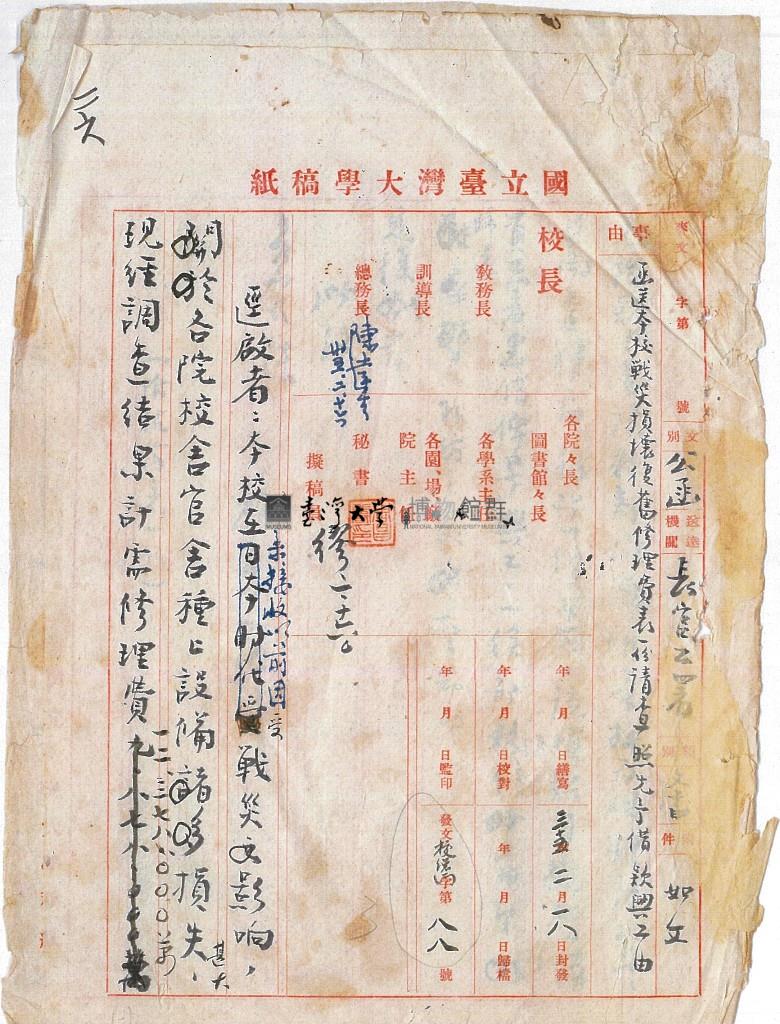 國立臺灣大學稿紙
來文 字第 號
文別 公函
送達機關 長官公署
類別
附件 如文
事由 函送本校戰災損壞復舊修理費表一份請查照先予借款興工由
校長
教務長
訓導長
總務長
各院々長
圖書館々長
各學系主任
各園、場、館
院主任
秘書
擬稿員
年 月 日繕寫
年 月 日校對
年 月 日監印
三五年二月一八日封發
年 月 日歸檔
發文校總字第八八號
逕啟者:本校在日本時代未接收以前因受戰災之影响,
關於各院校舍官舍種々設備諸多損失,甚大
現經調查結果計需修理費
一六
臺灣大學博物館群
MUSEUMS
NATIONAL TAIWAN UNIVERSITY MUSEUMS